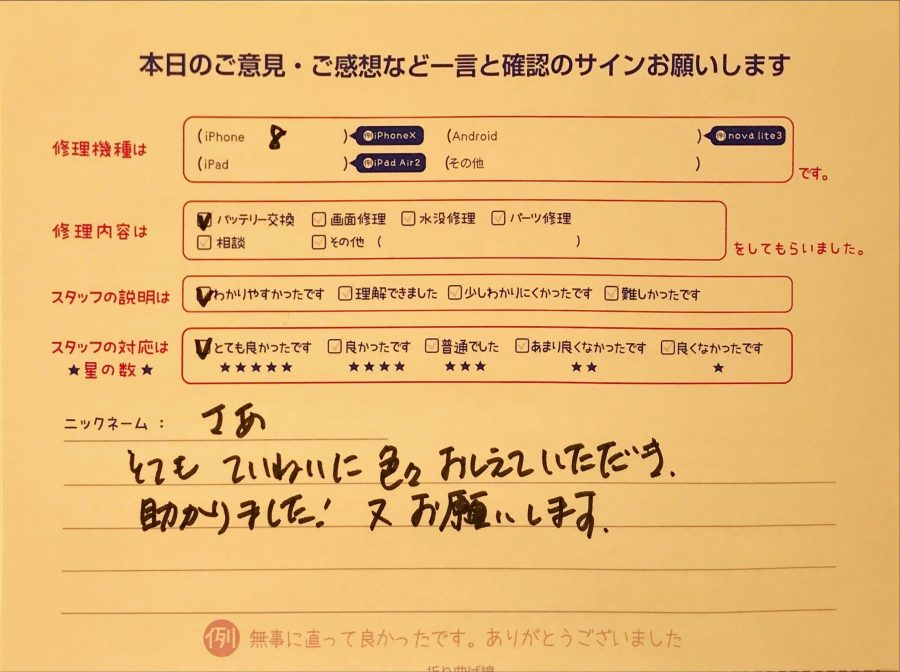 本日のご意見・ご感想など一言と確認のサインお願いします
修理機種は (iPhone 8 ) 例iPhoneX (Android ) 例nova lite3
(iPad ) 例iPad Air2 (その他 ) です。
修理内容は バッテリー交換 画面修理 水没修理 パーツ修理
相談 その他 ( ) をしてもらいました。
スタッフの説明は わかりやすかったです 理解できました 少しわかりにくかったです 難しかったです
スタッフの対応は とても良かったです 良かったです 普通でした あまり良くなかったです 良くなかったです
★星の数★ ★★★★★ ★★★★ ★★★ ★★ ★
ニックネーム:
とても ていねいに 色々 おしえていただき、
助かりました! 又 お願いします。
例 無事に直って良かったです。ありがとうございました